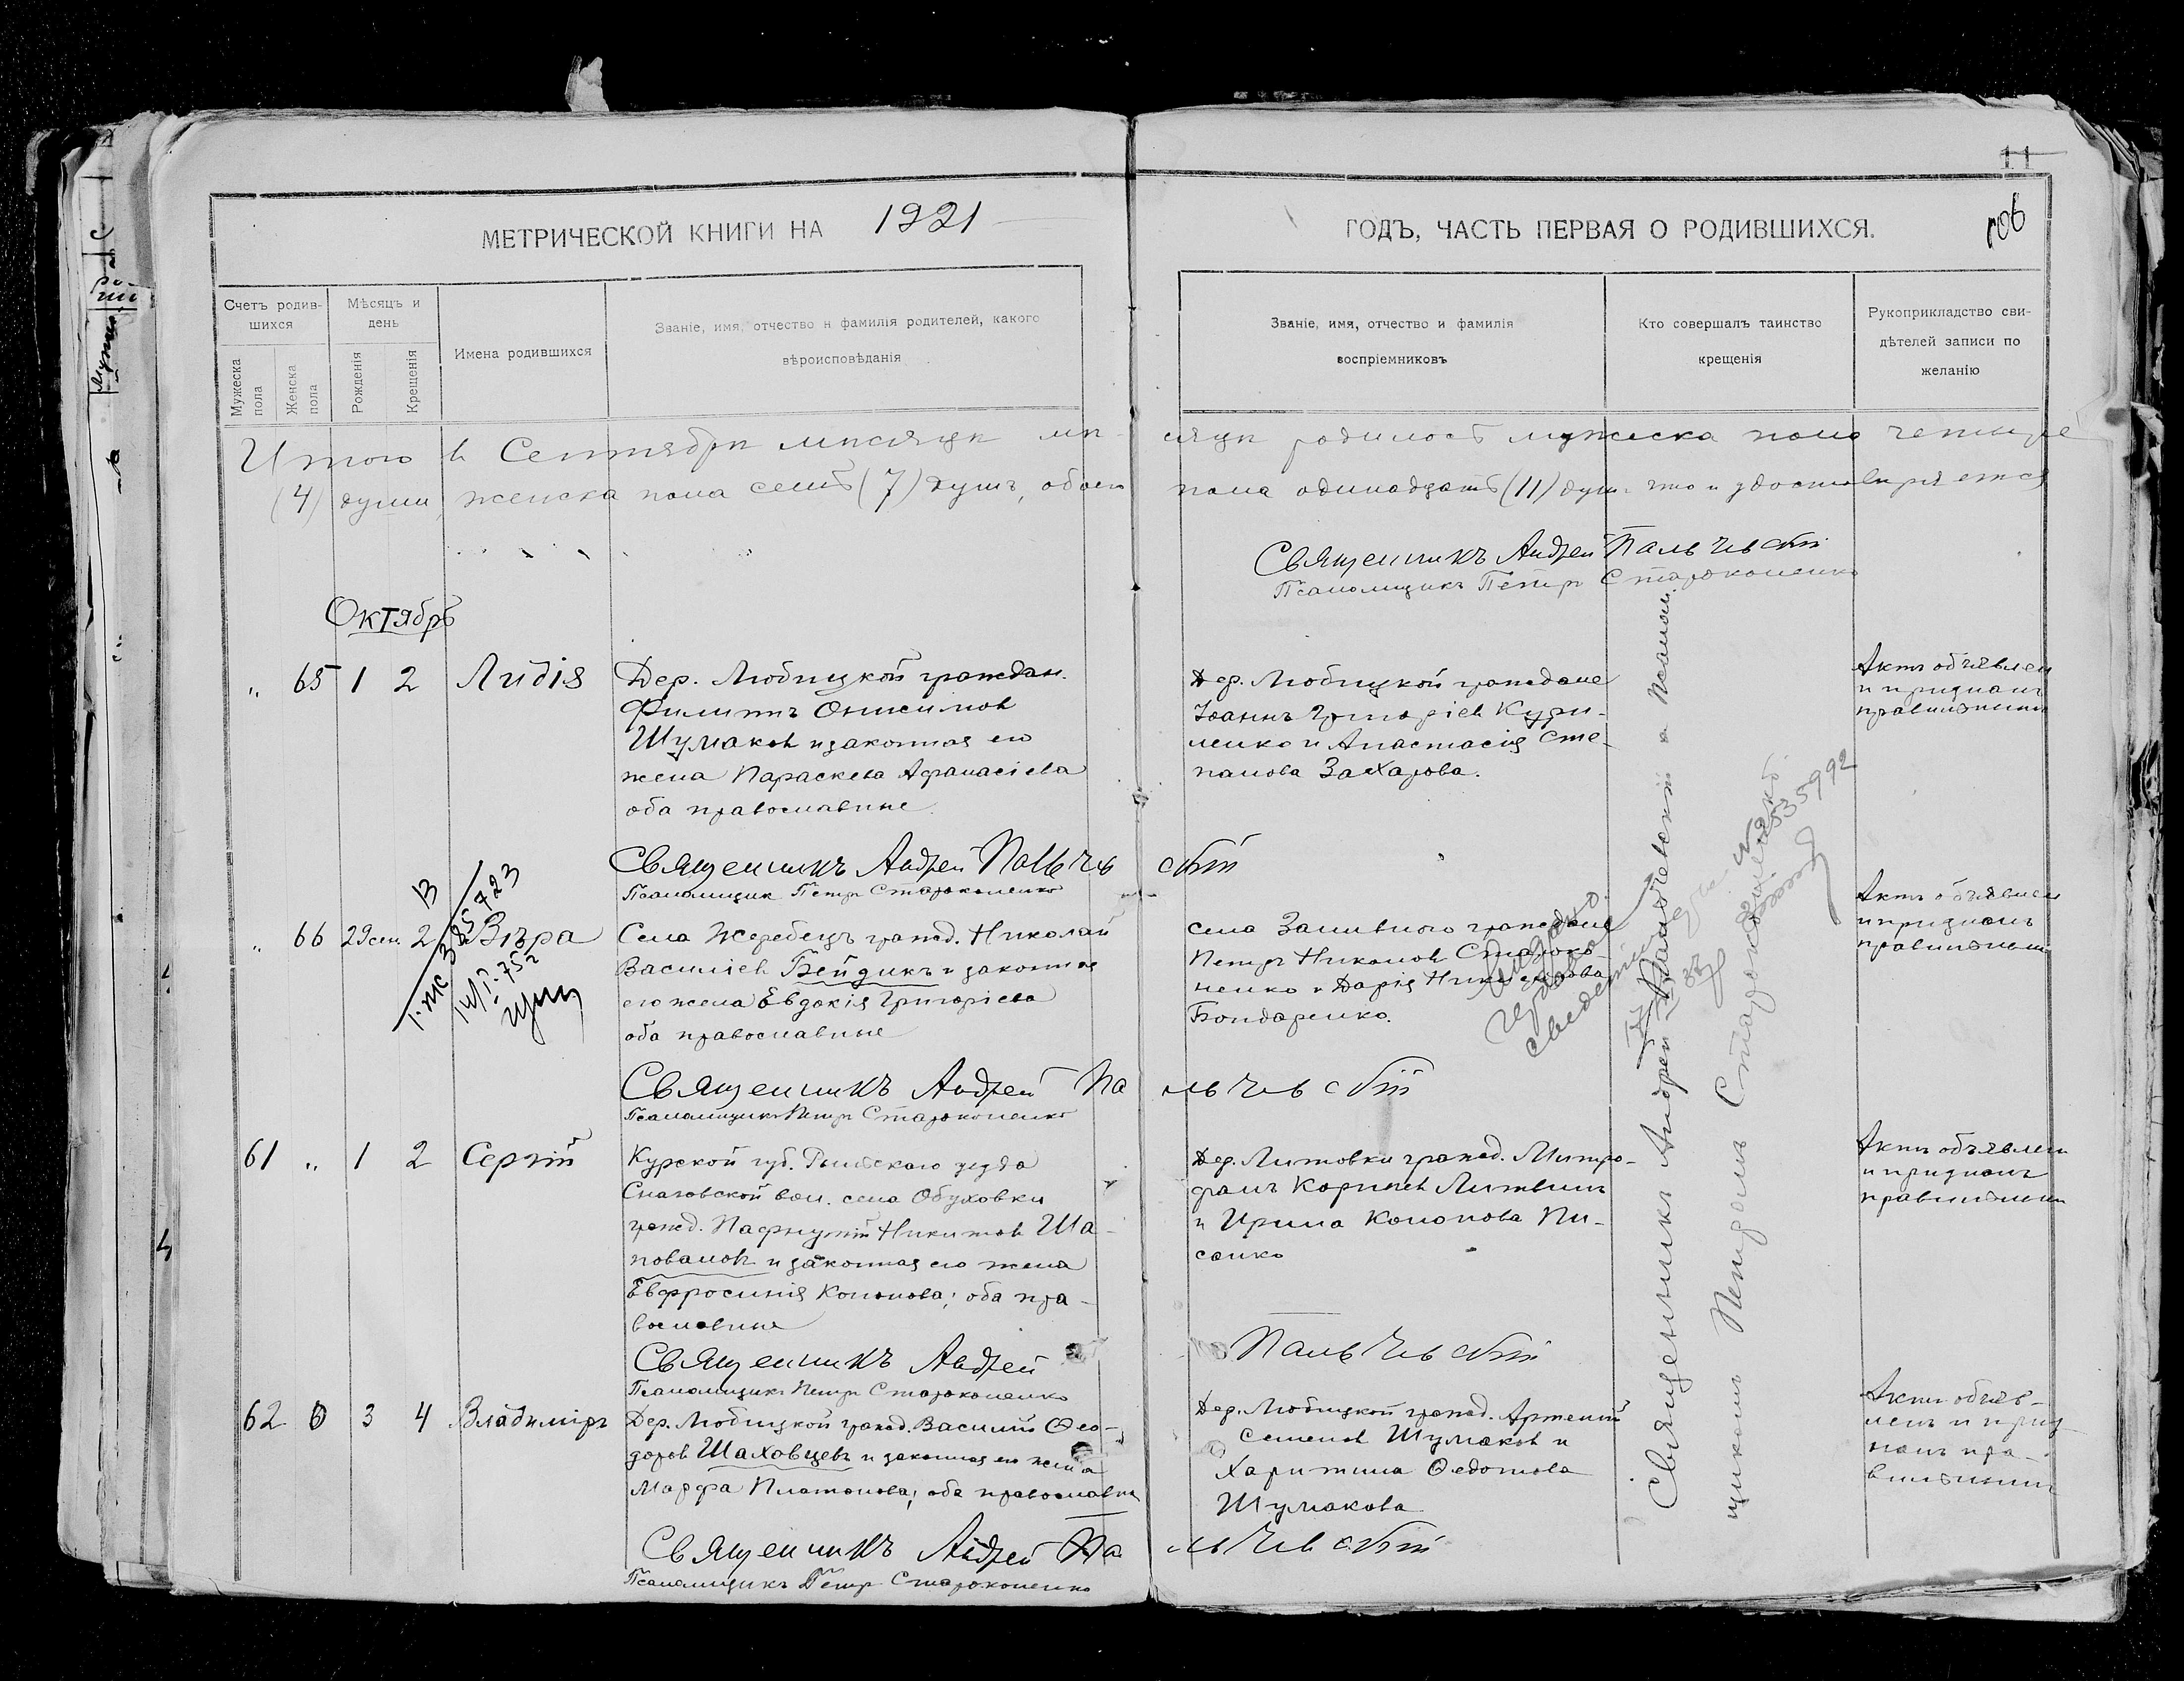 11
МЕТРИЧЕСКОЙ КНИГИ НА 1921 ГОДЪ, ЧАСТЬ ПЕРВАЯ О РОДИВШИХСЯ.
Счетъ родив-
шихся
Мужеска пола
Женска пола
Мѣсяцъ и
день
Рожденія
Крещенія
Имена родившихся
Званіе, имя, отчество и фамилія родителей, какого
вѣроисповѣданія
Званіе, имя, отчество и фамилія
воспріемниковъ
Кто совершалъ таинство
крещенія
Рукоприкладство сви-
дѣтелей записи по
желанію
Итого в Сентябрѣ мѣсяцѣ родилось мужеска пола четыре
(4) души, женска пола семь (7) душъ, обоего пола одинадцать (11) душ. что и удостовѣряется
Священникъ Андрей Пальчевскій
Псаломщикъ Петръ Староконенко
Октябрь
„ 65 1 2 Лидія
Дер. Любицкой граждан.
Филиппъ Онисимов
Шумаков и законная его
жена Параскева Афанасіева
оба православные
Дер. Любицкой граждане
Іоаннъ Григоріев Кури-
ленко и Анастасія Сте-
панова Захарова.
Актъ объявлен
и признанъ
правильным
Священникъ Андрей Пальчевскій
Псаломщик Петръ Староконенко
„ 66 29 сен. 2 Вѣра
Села Жеребецъ гражд. Николай
Василіев Бейдикъ и законная
его жена Евдокія Григоріева
оба православные
села Заливного граждане
Петръ Никонов Староко-
ненко и Дарія
Бондаренко.
Актъ объявлен
и признанъ
правильным
Священникъ Андрей Пальчевскій
Псаломщикъ Петръ Староконенко
61 „ 1 2 Сергій
Курской губ. Рыльскаго уезда
Снаговской вол. села Обуховки
гражд. Пафнутій Никитов Ша-
повалов и законная его жена
Евфросинія Кононова; оба пра-
вославные
Дер. Литовки гражд. Митро-
фанъ Литвин
и Ирина Кононова Пи-
санко
Актъ объявлен
и признанъ
правильным
Священникъ Андрей Пальчевскій
Псаломщикъ Петръ Староконенко
62 3 4 Владиміръ
Дер. Любицкой гражд. Василий Ѳео-
доров Шаховцевъ и законная его жена
Марфа Платонова; оба православны
Дер. Любицкой гражд. Артемий
Семенов Шумаков и
Харитина Ѳедотова
Шумакова
Актъ объяв-
ленъ и приз-
нанъ пра-
вильным
Священникъ Андрей Пальчевскій
Псаломщикъ Петръ Староконенко
Священникъ Андрей Пальчевский и псалом-
щикомъ Петромъ Староконенко